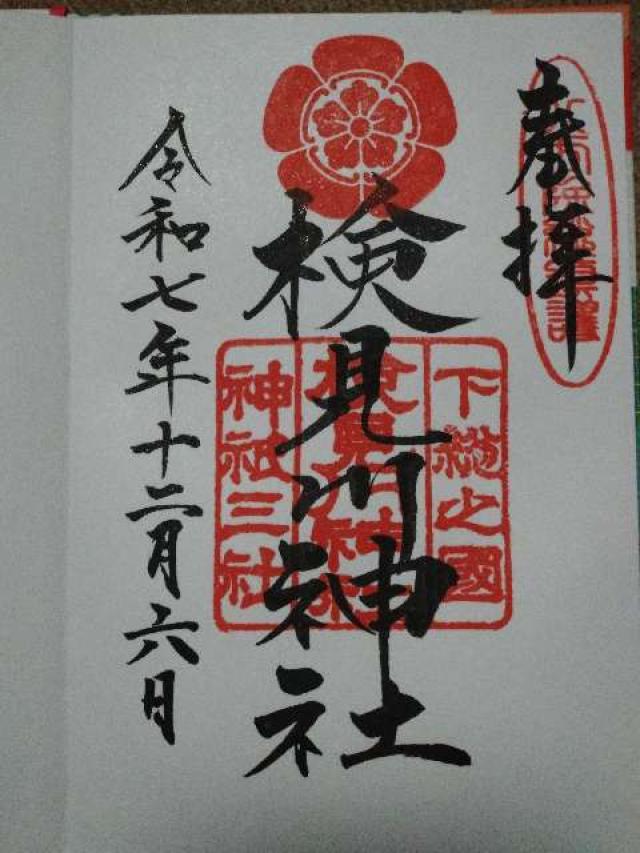 奉拝
下総之國
検見川神社
検見川神社
神祇三社
令和七年十二月六日